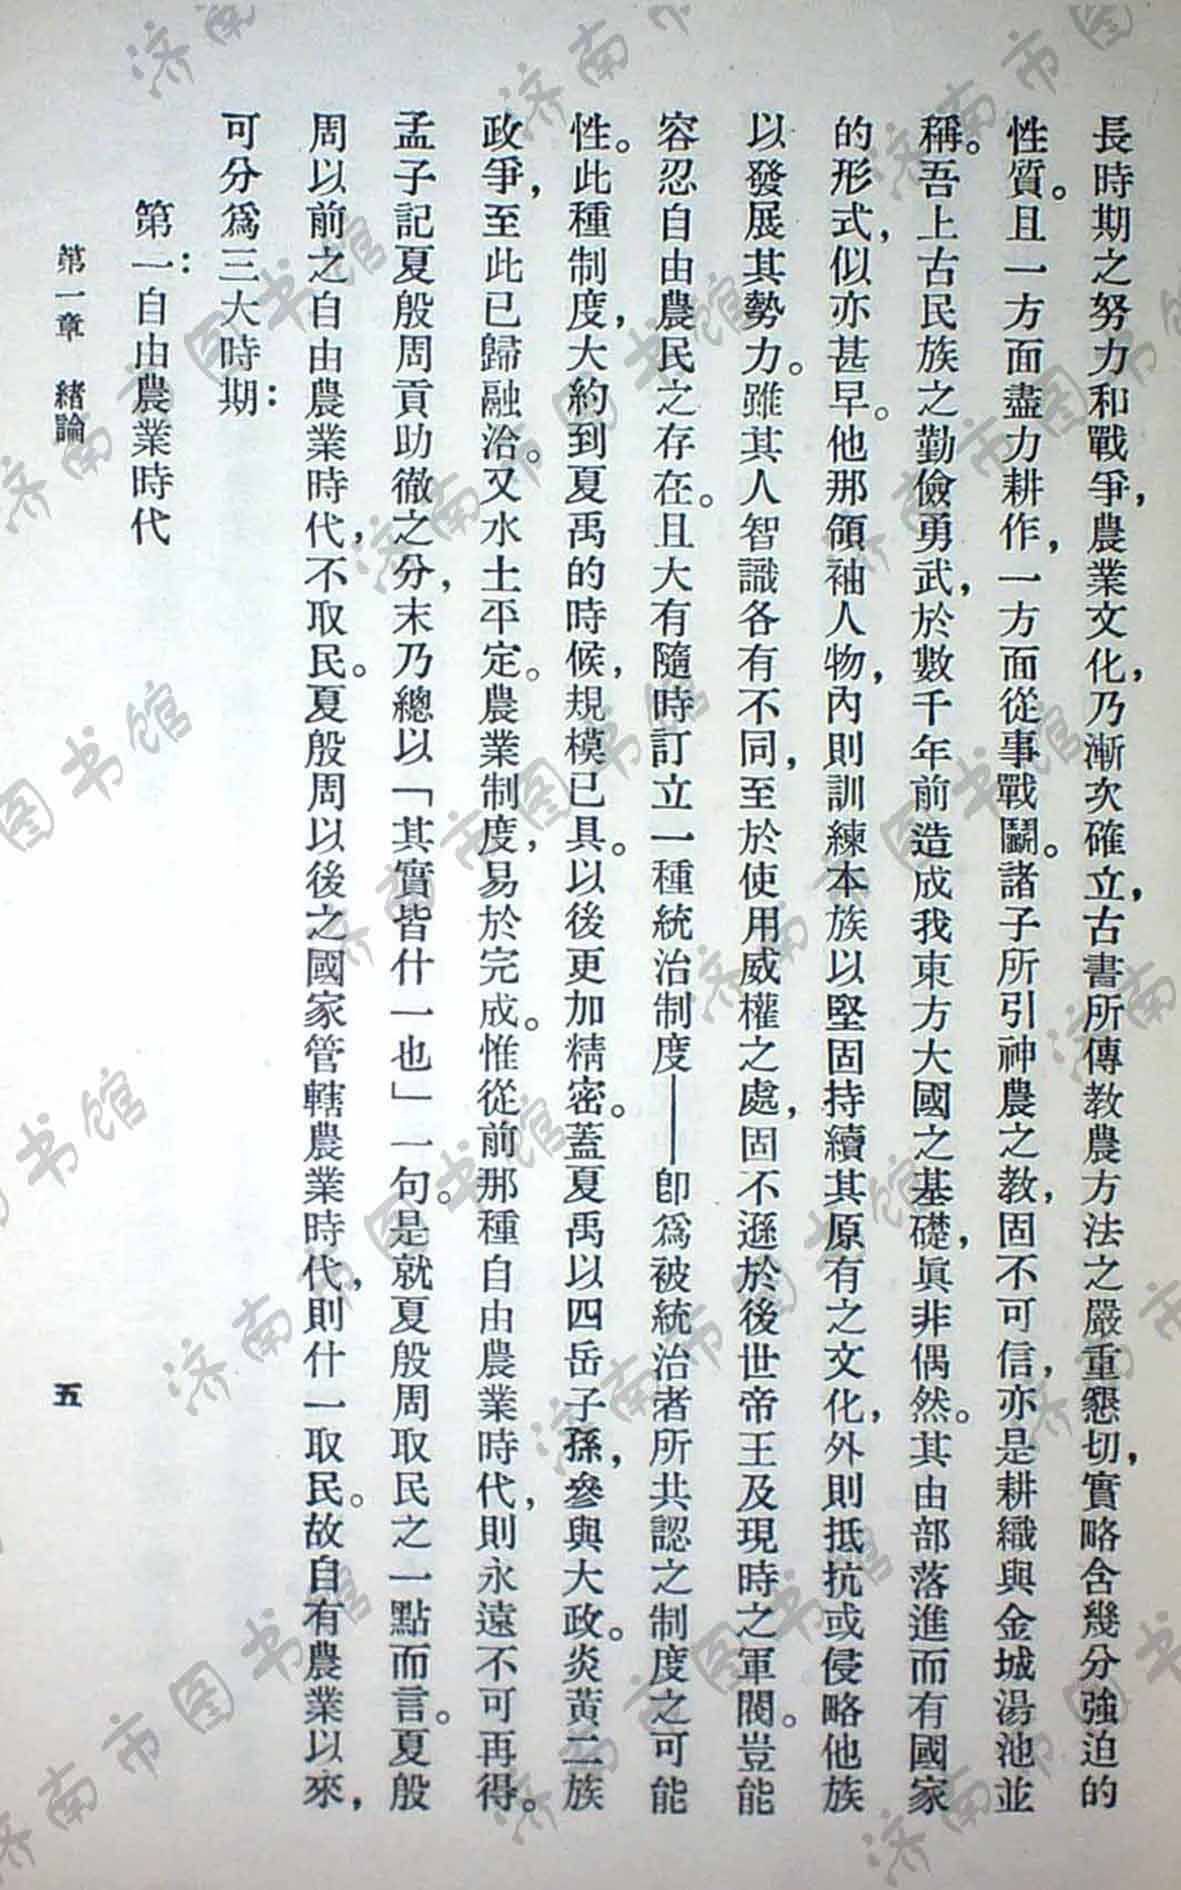 長時期之努力和戰爭，農業文化，乃漸次確立，古書所傳教農方法之嚴重懇切，實略含幾分強迫的
性質。且一方面盡力耕作，一方面從事戰鬭。諸子所引神農之教，固不可信，亦是耕織與金城湯池並
稱。吾上古民族之勤儉勇武，於數千年前造成我東方大國之基礎，眞非偶然。其由部落進而有國家
的形式，似亦甚早。他那領袖人物，內則訓練本族以堅固持續其原有之文化，外則抵抗或侵略他族
以發展其勢力。雖其人智識各有不同，至於使用威權之處，固不遜於後世帝王及現時之軍閥。豈能
容忍自由農民之存在。且大有隨時訂立一種統治制度——卽爲被統治者所共認之制度之可能
性。此種制度，大約到夏禹的時候，規模已具。以後更加精密。蓋夏禹以四岳子孫，參與大政。炎黃二族
政爭，至此已歸融洽。又水土平定。農業制度，易於完成。惟從前那種自由農業時代，則永遠不可再得。
孟子記夏殷周貢助徹之分，末乃總以「其實皆什一也」一句。是就夏殷周取民之一點而言。夏殷
周以前之自由農業時代，不取民。夏殷周以後之國家管轄農業時代，則什一取民。故自有農業以來，
可分爲三大時期：
第一：自由農業時代
第一章 緒論
五
济南市图书馆